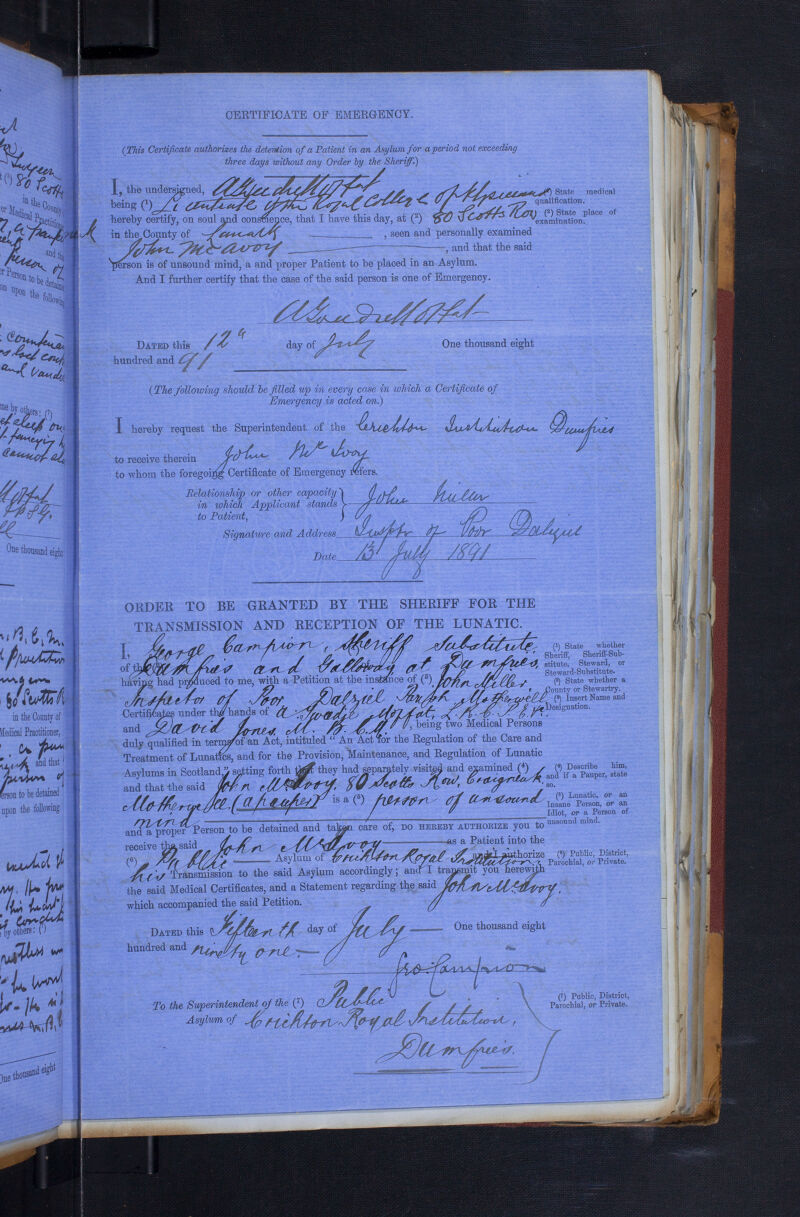 CERTIFICATE OF EMERGENCY.
(This Certificate authorizes the detention of a Patient in an Asylum for a period not exceeding
three days without any Order by the Sheriff.)
I, the undersigned, A Goudie Moffat
being (¹) Licentiate of the Royal College of Physicians
(¹) State medical
qualification.
hereby certify, on soul and conscience, that I have this day, at (²) 80 Scotts Row
(²) State place of
examination.
in the County of Lanark, seen and personally examined
John McAvoy, and that the said
person is of unsound mind, a and proper Patient to be placed in an Asylum.
And I further certify that the case of the said person is one of Emergency.
A Goudie Moffat
DATED this 12th day of July One thousand eight
hundred and 91
(The following should be filled up in every case in which a Certificate of
Emergency is acted on.)
I hereby request the Superintendent of the Crichton Institution Dumfries
to receive therein John Mc Ivoy
to whom the foregoing Certificate of Emergency refers.
Relationship or other capacity
in which Applicant stands
to Patient,
John Miller
Signature and Address Inspr of Poor Dalziel
Date 13 July 1891
ORDER TO BE GRANTED BY THE SHERIFF FOR THE
TRANSMISSION AND RECEPTION OF THE LUNATIC.
I, George Campion, Sheriff Substitute,
of the Dumfries and Galloway at Dumfries,
having had produced to me, with a Petition at the instance of (³) John Miller
Inspector of Poor Dalziel Parish Motherwell
Certificates under the hands of A Goudie Moffat, L.R.C.P.E.
and David Jones, M.B.C.M. being two Medical Persons
duly qualified in terms of an Act, intituled "An Act for the Regulation of the Care and
Treatment of Lunatics, and for the Provision, Maintenance, and Regulation of Lunatic
Asylums in Scotland," setting forth that they had separately visited and examined (⁴)
and that the said John McAvoy, 80 Scotts Row, Craigneuk
Motherwell (a pauper) is a (⁵) person of unsound
mind
and a proper Person to be detained and taken care of, DO HEREBY AUTHORIZE you to
receive the said John McAvoy as a Patient into the
(⁶) Public Asylum of Crichton Royal Institution; authorize
his Transmission to the said Asylum accordingly; and I transmit you herewith
the said Medical Certificates, and a Statement regarding the said John McAvoy.
which accompanied the said Petition.
(¹) State whether
Sheriff, Sheriff-Sub-
stitute, Steward, or
Steward-Substitute.
(²) State whether a
County or Stewartry.
(³) Insert Name and
Designation.
(⁴) Describe him,
and if a Pauper, state
so.
(⁵) Lunatic, or an
Insane Person, or an
Idiot, or a Person of
unsound mind.
(⁶) Public, District,
Parochial, or Private.
DATED this Fifteenth day of July One thousand eight
hundred and ninety one.
Geo: Campion
To the Superintendent of the (⁷) Public
Asylum of Crichton Royal Institution,
Dumfries.
(⁷) Public, District,
Parochial, or Private.